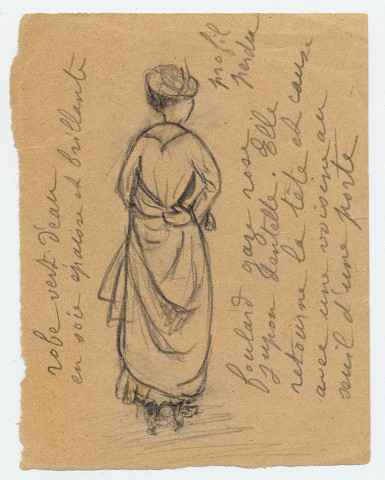 robe vert d'eau
en soie épaisse et brillante
profil
perdu
foulard gaze rose
jupon dentelle. Elle
retourne la tête et cause
avec une voisine au
seuil d'une porte